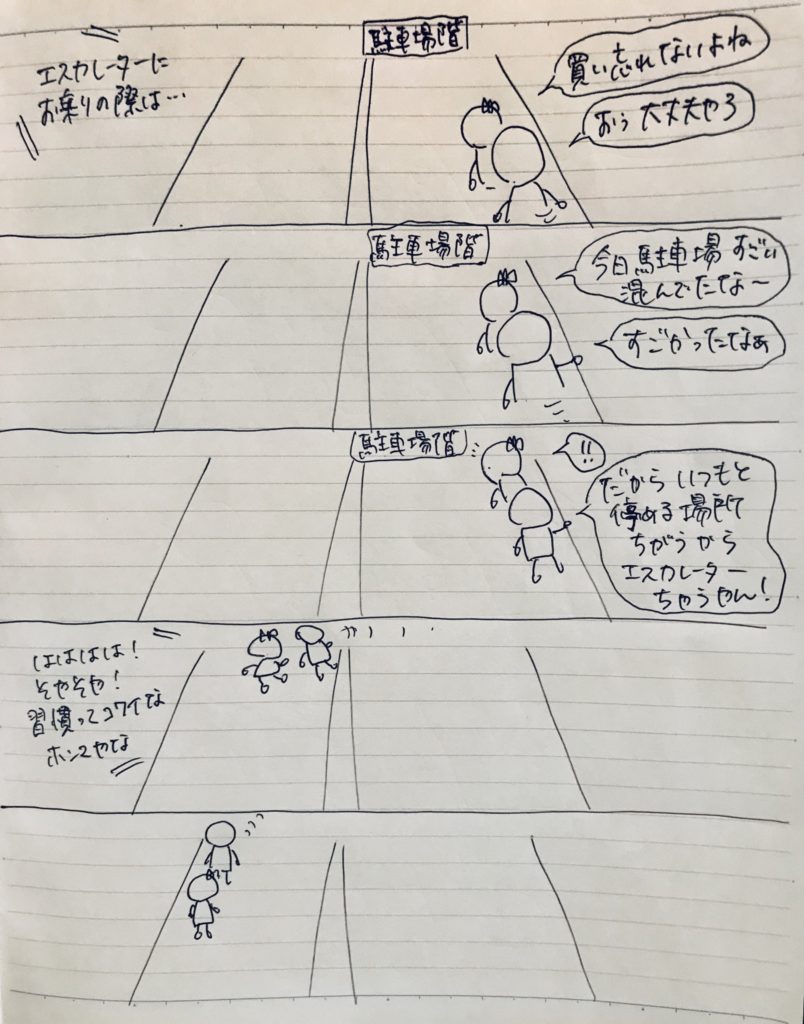 エスカレーターに
お乗りの際は…
駐車場階
買い忘れてないよね
おう 大丈夫やろ
駐車場階
今日駐車場 すごい
混んでたな〜
すごかったなぁ
駐車場階
!!
だから いつもと
停める場所
ちがうから
エスカレーター
ちゃうやん!
はははは!
そやそや!
習慣ってコワイな
ホンマやな